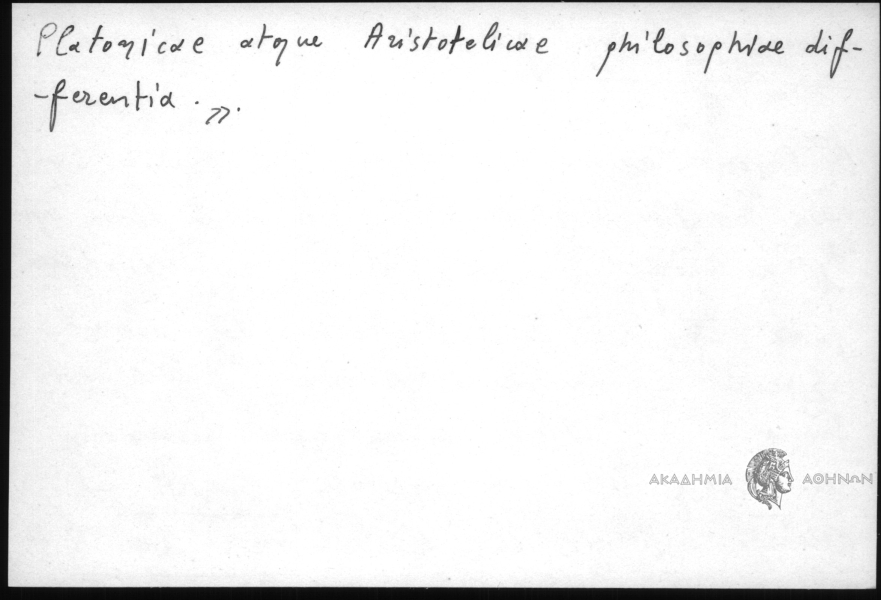 Platonicae atque Aristotelicae philosophiae dif-
-ferentia . ».
ΑΚΑΔΗΜΙΑ ΑΘΗΝΩΝ